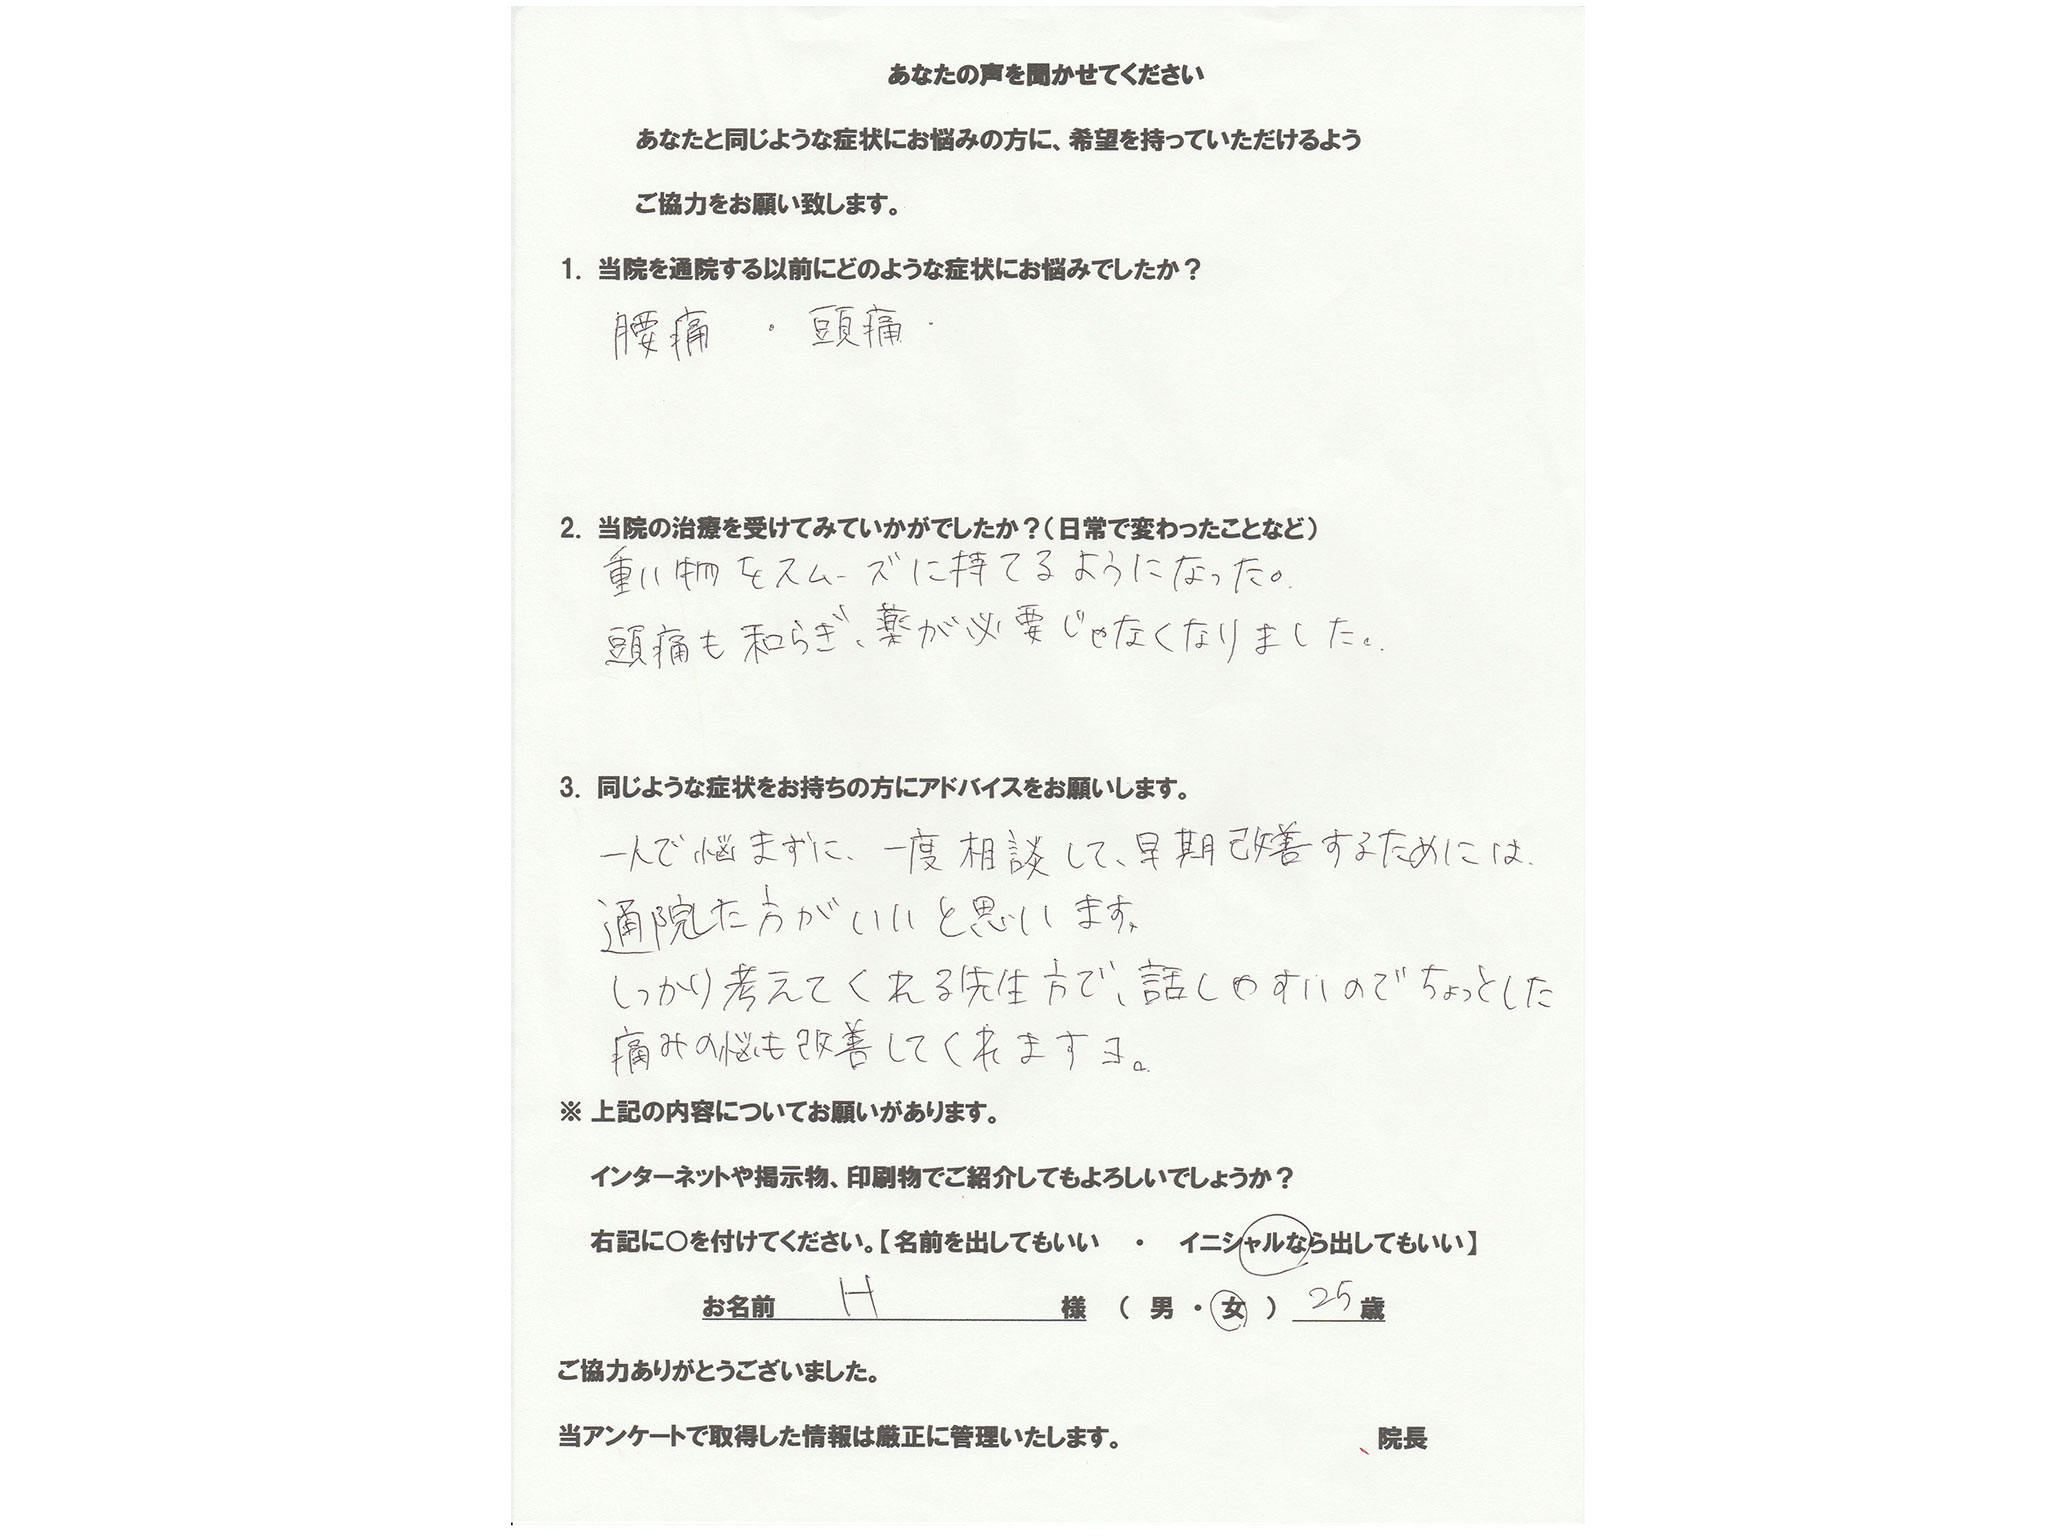 あなたの声を聞かせてください
あなたと同じような症状にお悩みの方に、希望を持っていただけるよう
ご協力をお願い致します。
1. 当院を通院する以前にどのような症状にお悩みでしたか？
腰痛 ・ 頭痛・
2. 当院の治療を受けてみていかがでしたか？（日常で変わったことなど）
重い物をスムーズに持てるようになった。
頭痛も和らぎ、薬が必要じゃなくなりました。
3. 同じような症状をお持ちの方にアドバイスをお願いします。
一人で悩まずに、一度相談して、早期改善するためには、
通院した方がいいと思います。
しっかり考えてくれる先生方で、話しやすいのでちょっとした
痛みの悩も改善してくれますヨ。
※ 上記の内容についてお願いがあります。
インターネットや掲示物、印刷物でご紹介してもよろしいでしょうか？
右記に〇を付けてください。【名前を出してもいい ・ イニシャルなら出してもいい】
お名前 H 様 （ 男 ・ 女 ） 25 歳
ご協力ありがとうございました。
当アンケートで取得した情報は厳正に管理いたします。 院長